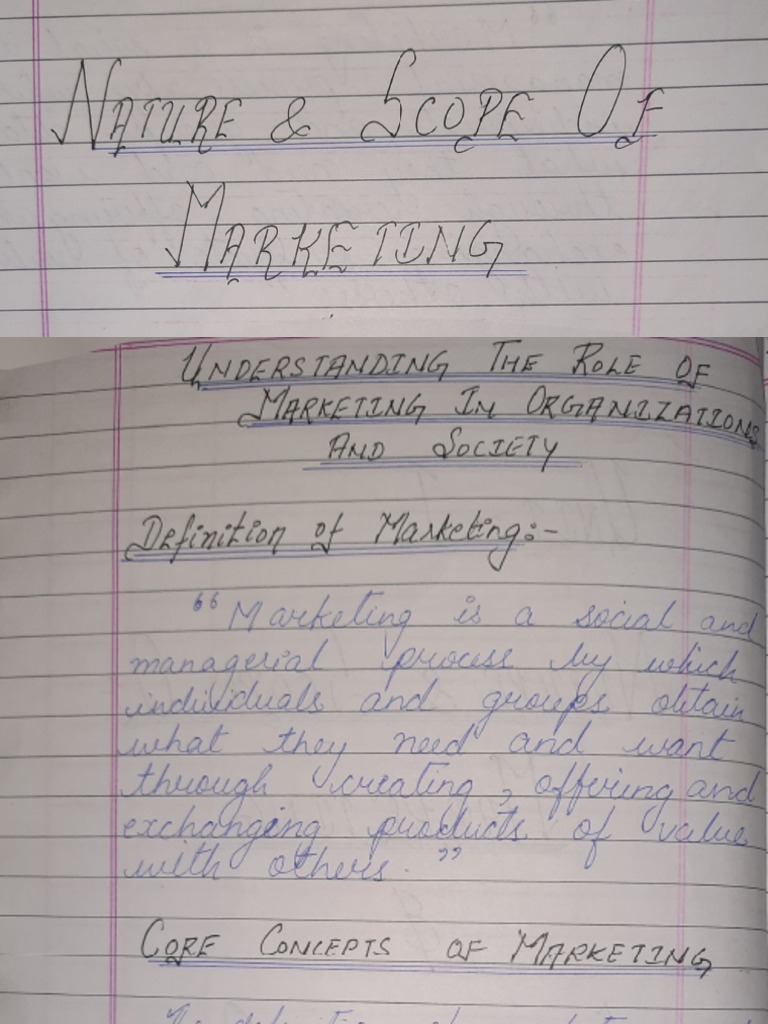 NATURE & SCOPE OF
MARKETING
UNDERSTANDING THE ROLE OF
MARKETING IN ORGANIZATIONS
AND SOCIETY
Definition of Marketing:-
"Marketing is a social and
managerial process by which
individuals and groups obtain
what they need and want
through creating, offering and
exchanging products of value
with others."
CORE CONCEPTS OF MARKETING